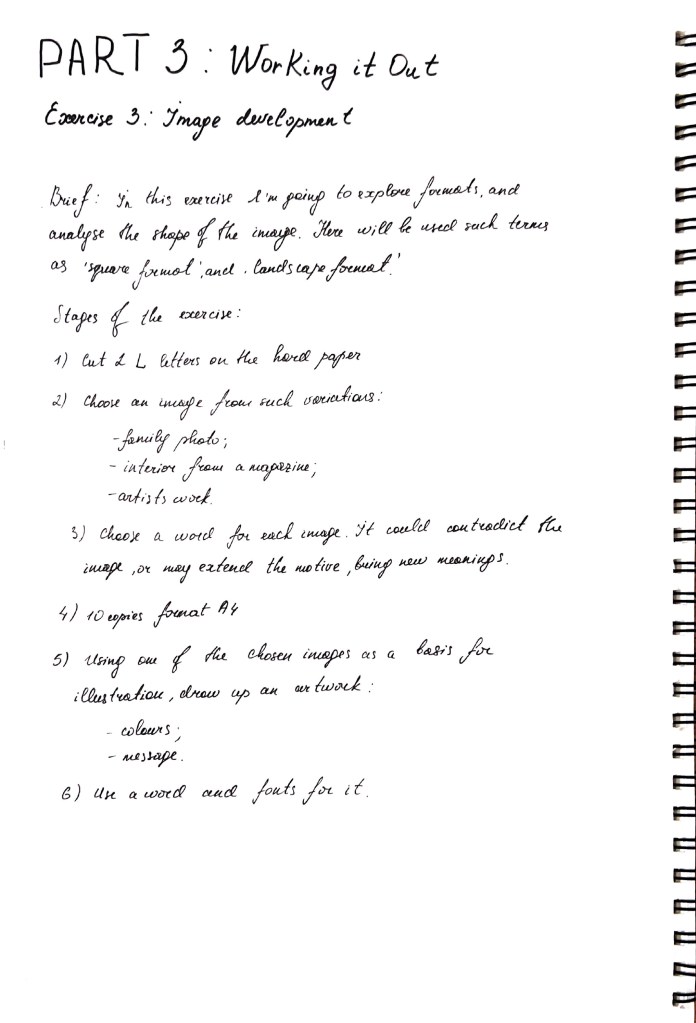 PART 3: Working it Out
Exercise 3: Image development
Brief: In this exercise I'm going to explore formats, and
analyse the shape of the image. Here will be used such terms
as 'square format', and 'landscape format.'
Stages of the exercise:
1) Cut 2 L letters on the hard paper
2) Choose an image from such variations:
- family photo;
- interior from a magazine;
- artists work.
3) Choose a word for each image. It could contradict the
image, or may extend the motive, bring new meanings.
4) 10 copies format A4
5) Using one of the chosen images as a basis for
illustration, draw up an artwork:
- colours;
- message.
6) Use a word and fonts for it.